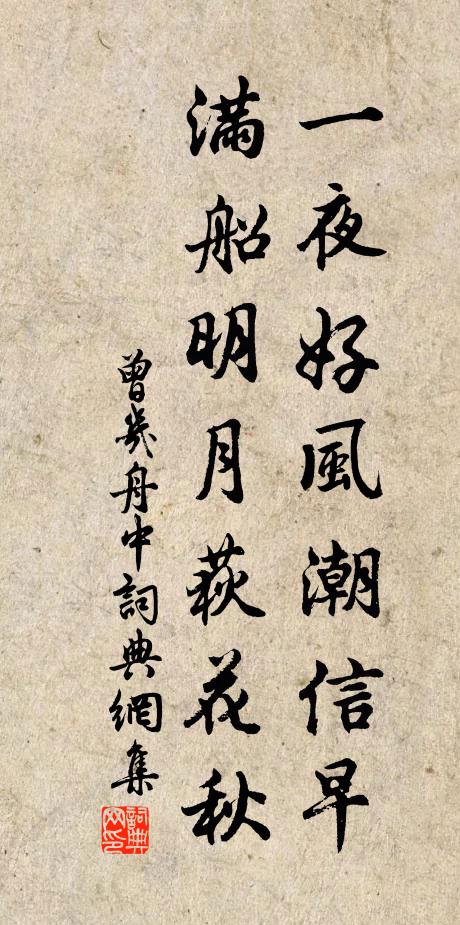 一夜好風潮信早
滿船明月荻花秋
曾幾舟中詞典網集
詞典网印